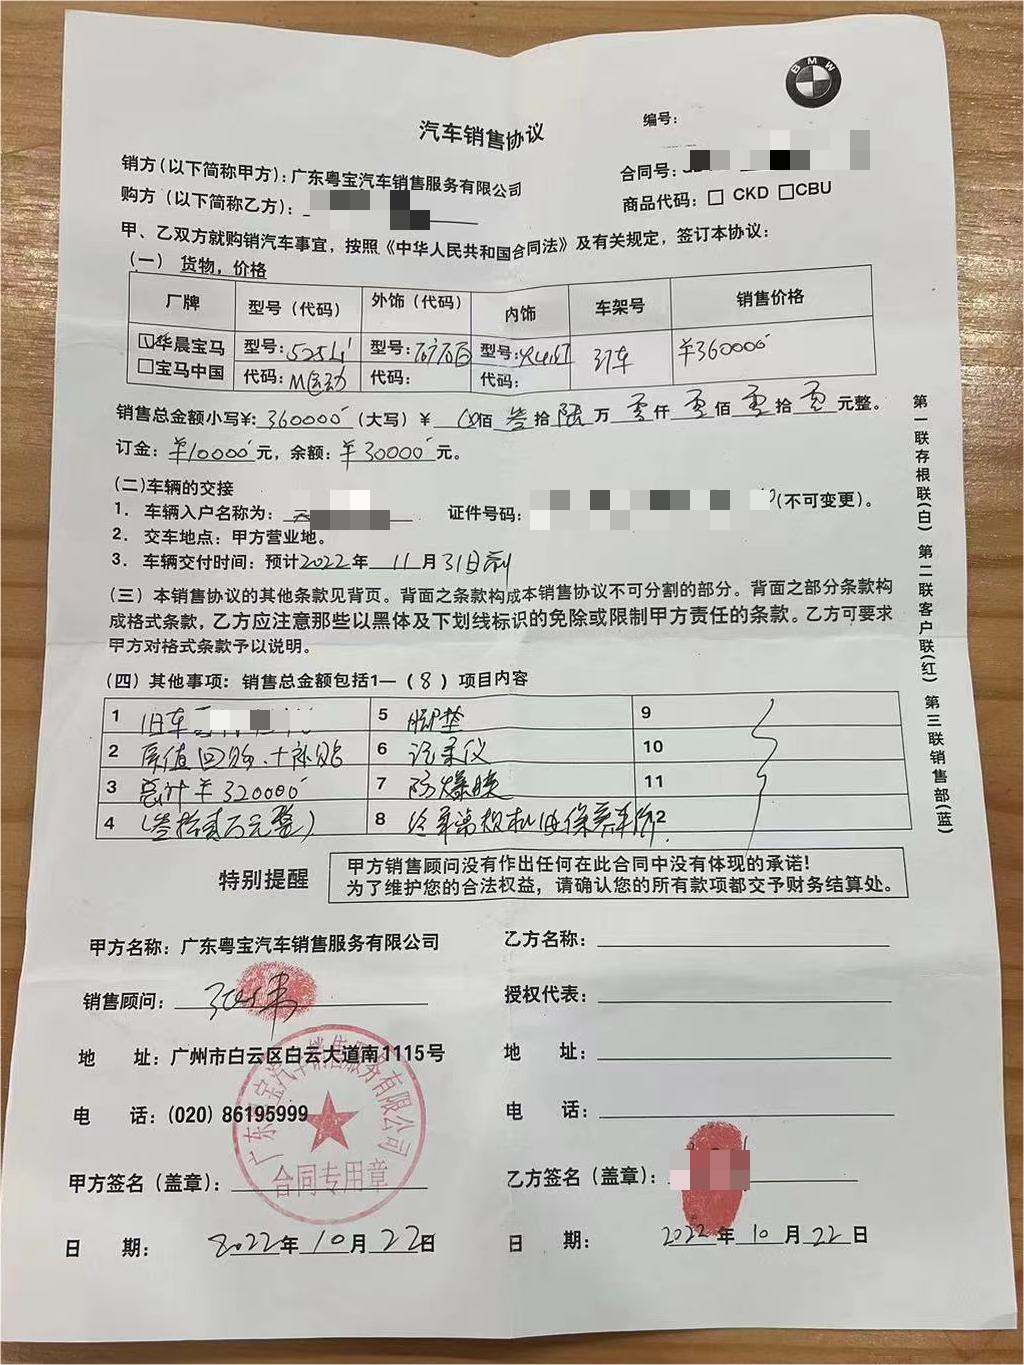 BMW
汽车销售协议
编号:
销方(以下简称甲方):广东粤宝汽车销售服务有限公司
合同号:
购方(以下简称乙方):
商品代码: CKD CBU
甲、乙双方就购销汽车事宜,按照《中华人民共和国合同法》及有关规定,签订本协议:
(一) 货物,价格
厂牌 型号(代码) 外饰(代码) 内饰 车架号 销售价格
华晨宝马 型号:525Li 型号:矿石白 型号: 订车 ¥360000
宝马中国 代码:M运动 代码: 代码:
销售总金额小写¥:360000(大写)¥ 佰叁拾陆万零仟零佰零拾零元整。
订金:¥10000元,余额:¥30000元。
(二)车辆的交接
1. 车辆入户名称为: 证件号码: (不可变更)。
2. 交车地点:甲方营业地。
3. 车辆交付时间:预计2022年11月31日前
(三)本销售协议的其他条款见背页。背面之条款构成本销售协议不可分割的部分。背面之部分条款构
成格式条款,乙方应注意那些以黑体及下划线标识的免除或限制甲方责任的条款。乙方可要求
甲方对格式条款予以说明。
(四)其他事项:销售总金额包括1—(8)项目内容
1 旧车 5 脚垫 9
2 原值回购.+补贴 6 记录仪 10
3 总计¥320000 7 防爆膜 11
4 (叁拾贰万元整) 8 12
特别提醒
甲方销售顾问没有作出任何在此合同中没有体现的承诺!
为了维护您的合法权益,请确认您的所有款项都交予财务结算处。
第一联存根联(白) 第二联客户联(红) 第三联销售部(蓝)
甲方名称:广东粤宝汽车销售服务有限公司 乙方名称:
销售顾问: 授权代表:
地 址:广州市白云区白云大道南1115号 地 址:
电 话:(020)86195999 电 话:
甲方签名(盖章): 乙方签名(盖章):
日 期:2022年10月22日 日 期:2022年10月22日
广东粤宝汽车销售服务有限公司
合同专用章